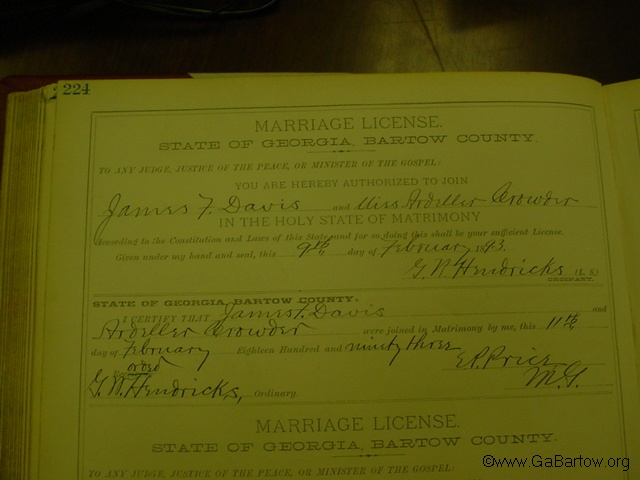 224
MARRIAGE LICENSE.
STATE OF GEORGIA, BARTOW COUNTY.
TO ANY JUDGE, JUSTICE OF THE PEACE, OR MINISTER OF THE GOSPEL:
YOU ARE HEREBY AUTHORIZED TO JOIN
James F. Davis and Miss Ardeller Crowder
IN THE HOLY STATE OF MATRIMONY
According to the Constitution and Laws of this State, and for so doing this shall be your sufficient License.
Given under my hand and seal, this 9th day of February 1893.
G. W. Hendricks (L. S.)
ORDINARY.
STATE OF GEORGIA, BARTOW COUNTY.
I CERTIFY THAT James F. Davis and
Ardeller Crowder were joined in Matrimony by me, this 11th
day of February Eighteen Hundred and ninety three
E. P. Price
M.G.
G. W. Hendricks, Ordinary.
MARRIAGE LICENSE.
STATE OF GEORGIA, BARTOW COUNTY.
TO ANY JUDGE, JUSTICE OF THE PEACE, OR MINISTER OF THE GOSPEL:
©www.GaBartow.org